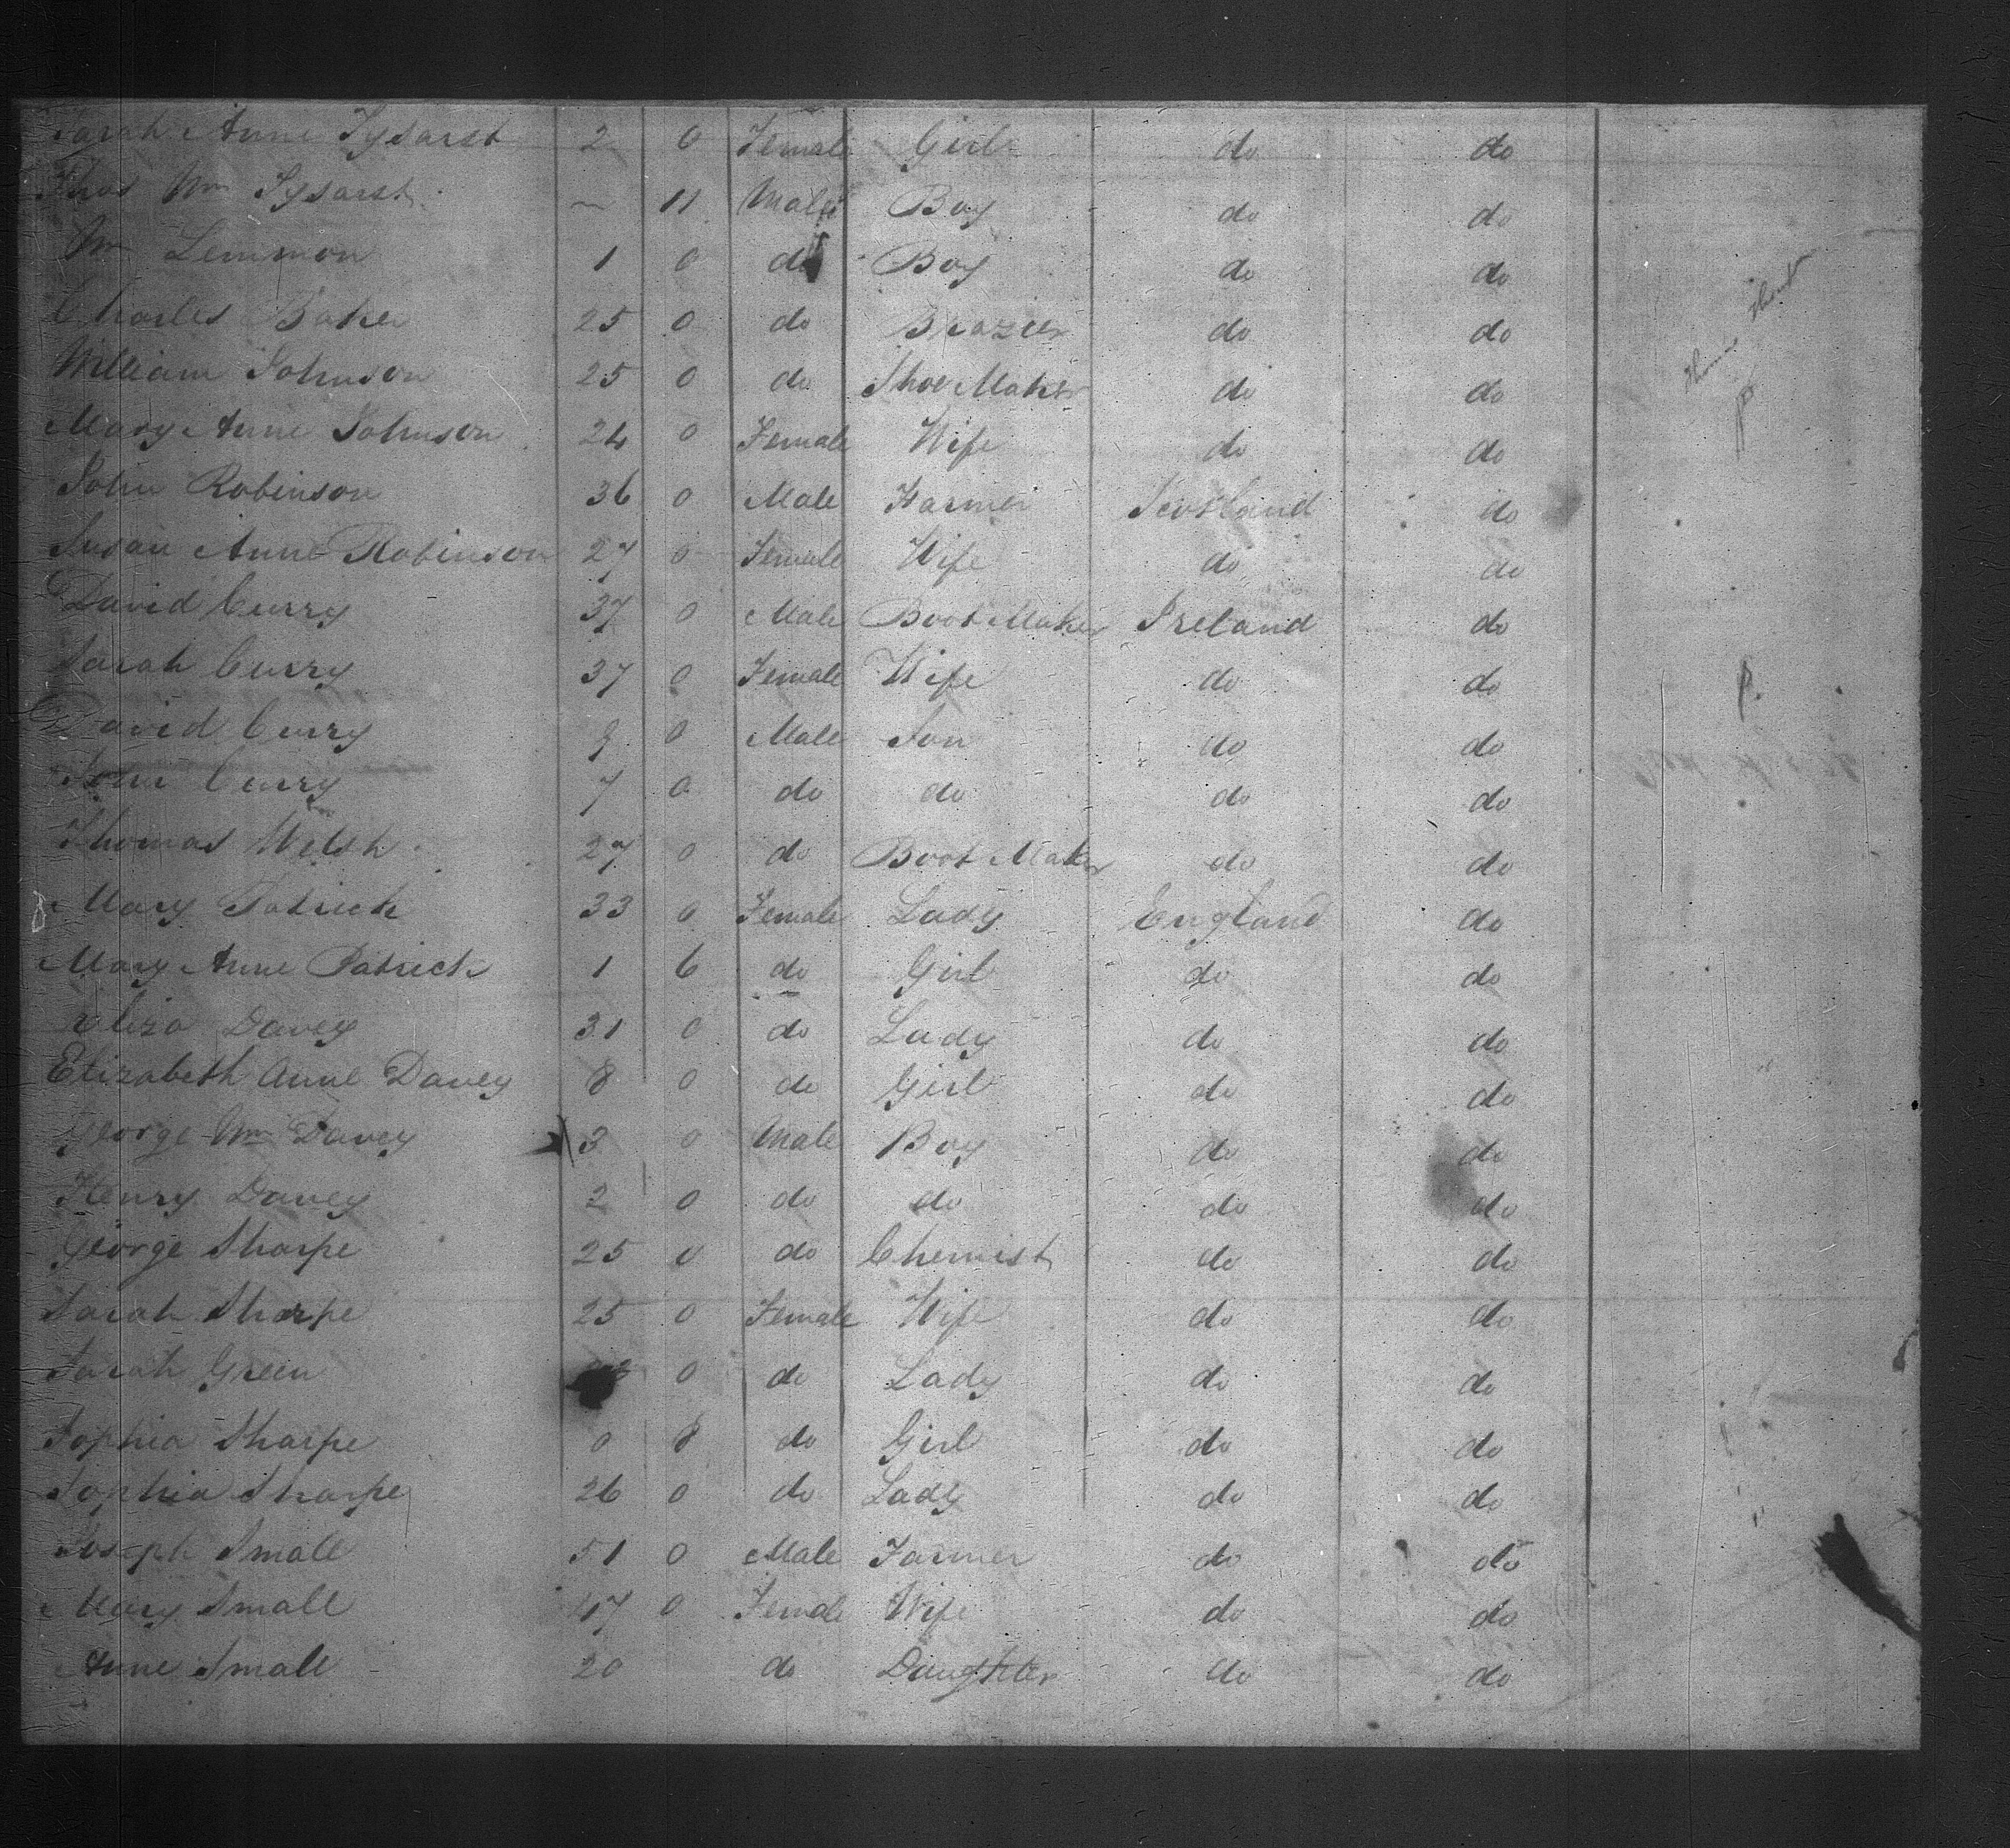 Sarah Anne Tysarst 2 0 Female Girl do do
Thos Wm Tysarst ~ 11 Male Boy do do
Wm Lemmon 1 0 do Boy do do
Charles Baker 25 0 do Brazier do do
William Johnson 25 0 do Shoe Maker do do
Mary Anne Johnson 24 0 Female Wife do do
John Robinson 36 0 Male Farmer Scotland do
Susan Anne Robinson 27 0 Female Wife do do
David Curry 37 0 Male Boot Maker Ireland do
Sarah Curry 37 0 Female Wife do do
David Curry 9 0 Male Son do do
John Curry 7 0 do do do do
Thomas Welsh 27 0 do Boot Maker do do
Mary Patrick 33 0 Female Lady England do
Mary Anne Patrick 1 6 do Girl do do
Eliza Davey 31 0 do Lady do do
Elizabeth Anne Davey 8 0 do Girl do do
George Wm Davey 3 0 Male Boy do do
Henry Davey 2 0 do do do do
George Sharpe 25 0 do Chemist do do
Sarah Sharpe 25 0 Female Wife do do
Sarah Green 0 do Lady do do
Sophia Sharpe 0 8 do Girl do do
Sophia Sharpe 26 0 do Lady do do
Joseph Small 51 0 Male Farmer do do
Mary Small 47 0 Female Wife do do
Anne Small 20 do Daughter do do